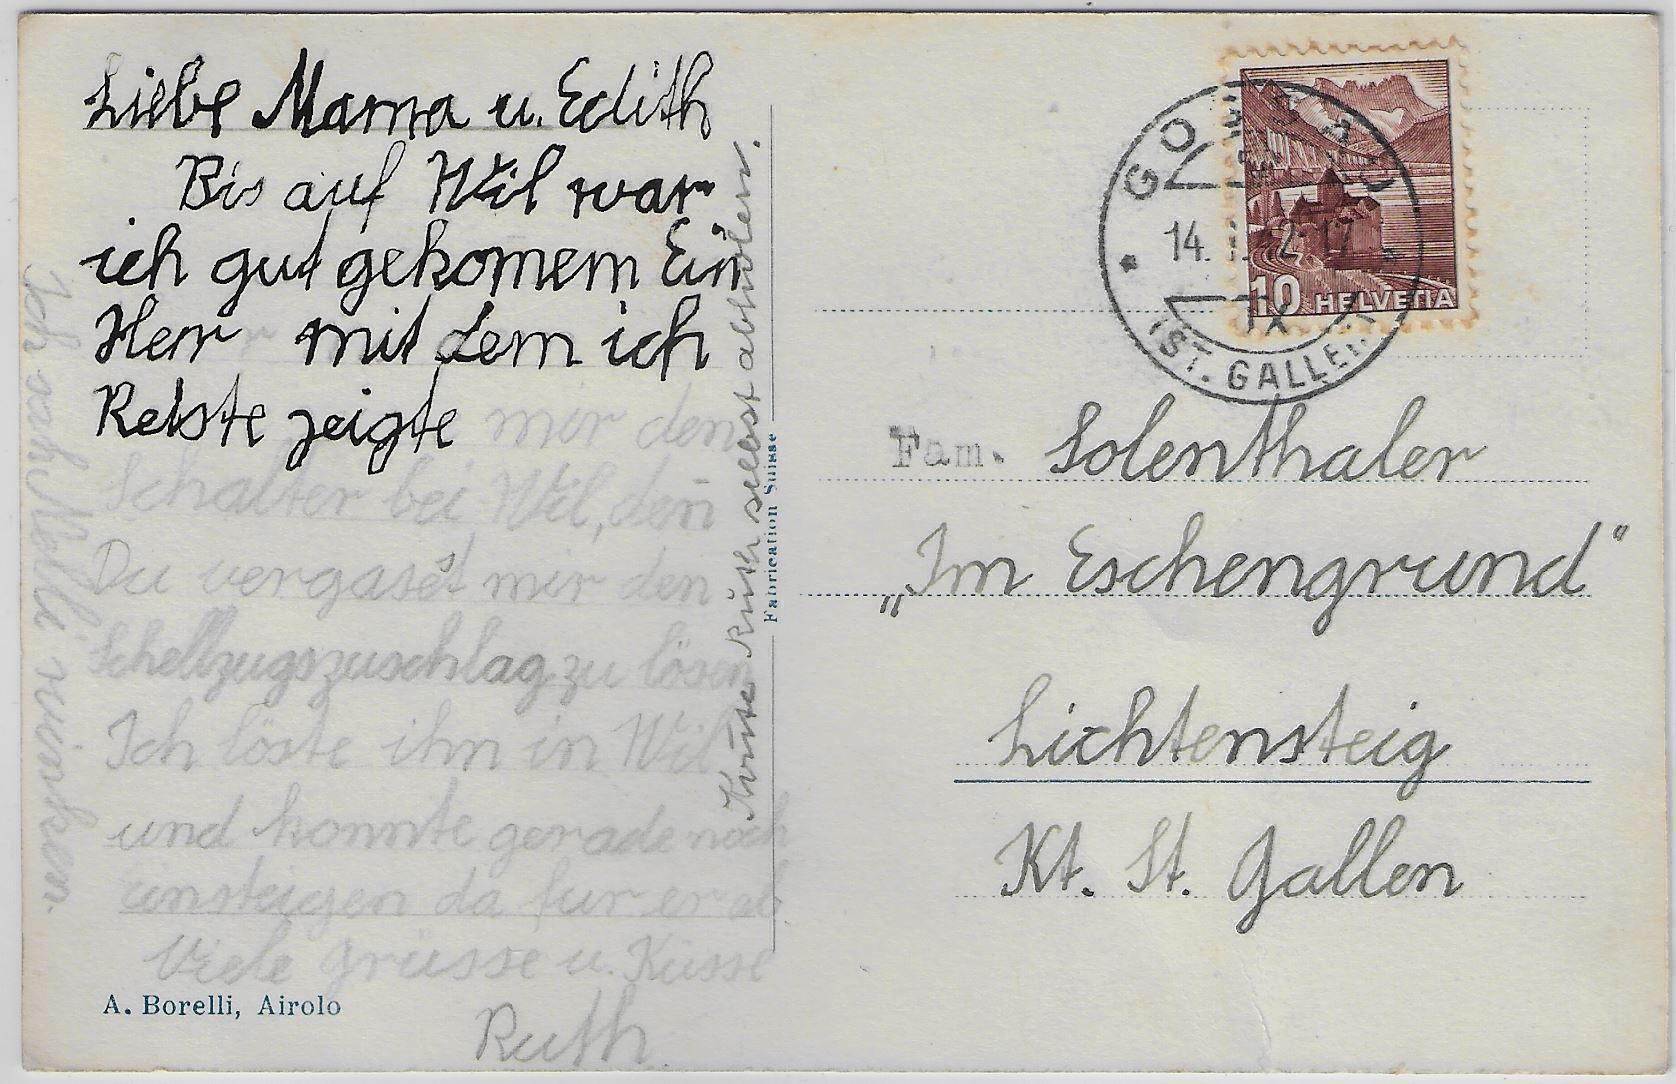 Liebe Mama u. Edith
Bis auf Wil war
ich gut gekomem Ein
Herr mit dem ich
Reiste zeigte mir den
Schalter bei Wil, den̄
Du vergasest mir den
Schellzugszuschlag zu lösen
Ich löste ihn in Wil
und konnte gerade noch
einsteigen da fur er ab
Viele grüsse u. Küsse
Ruth
Ruth selbst abholen.
Ich
A. Borelli, Airolo
Fabrication Suisse
10 HELVETIA
14.
(ST. GALLEN)
Fam. Solenthaler
„Im Eschengrund"
Lichtensteig
Kt. St. Gallen